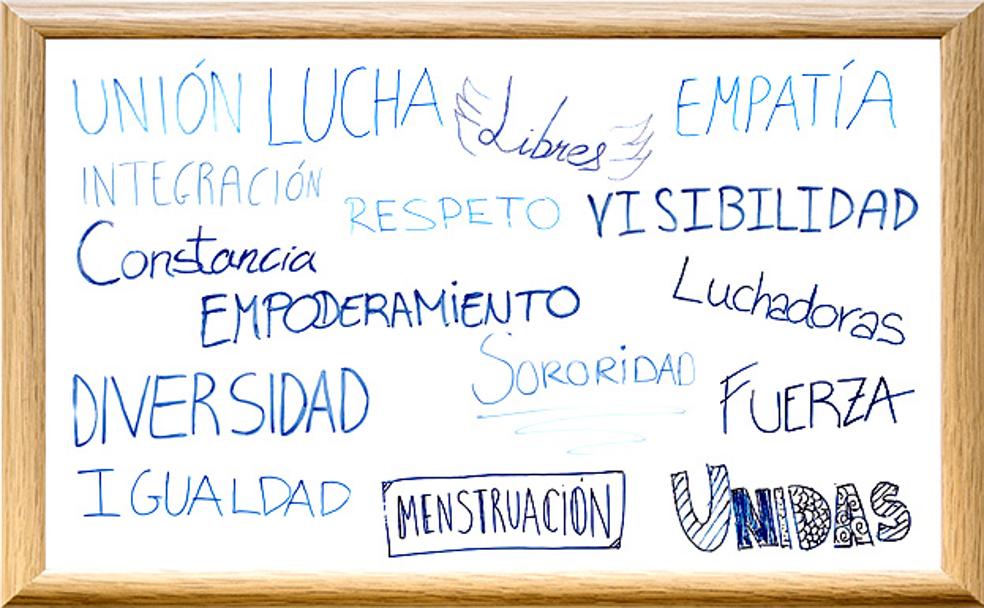 UNIÓN LUCHA Libres EMPATÍA
INTEGRACIÓN
RESPETO VISIBILIDAD
Constancia
EMPODERAMiENTO Luchadoras
SORORiDAD
DIVERSIDAD FUERZA
IGUALDAD MENSTRUACIÓN UNIDAS